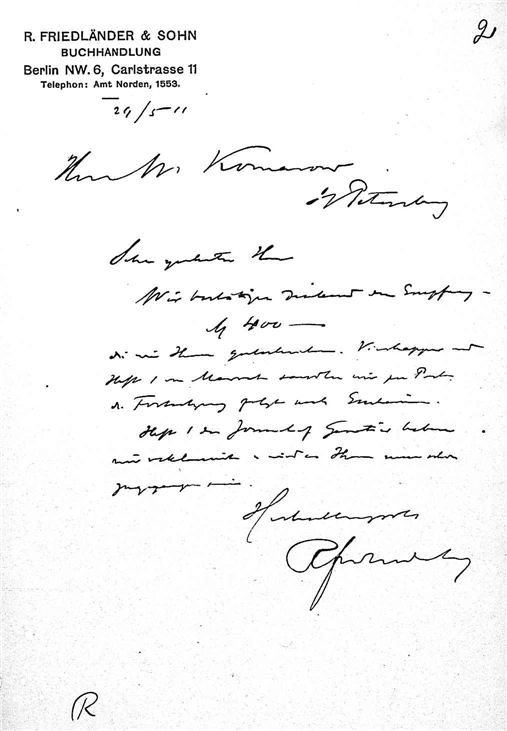 R. FRIEDLÄNDER & SOHN
BUCHHANDLUNG
Berlin NW. 6, Carlstrasse 11
Telephon: Amt Norden, 1553.
29/5 11
2
Herrn W. Komarow
St Petersburg
Sehr geehrter Herr
Wir bestätigen dankend den Empfang
M 400 —
die wir Ihnen und
Heft 1 wir per Post.
die Fortsetzung folgt nach Erscheinen.
Heft 1 des Journal of Genetics haben
wir reklamiert Ihnen
zugegangen sein.
Hochachtungsvoll
R Friedländer
R